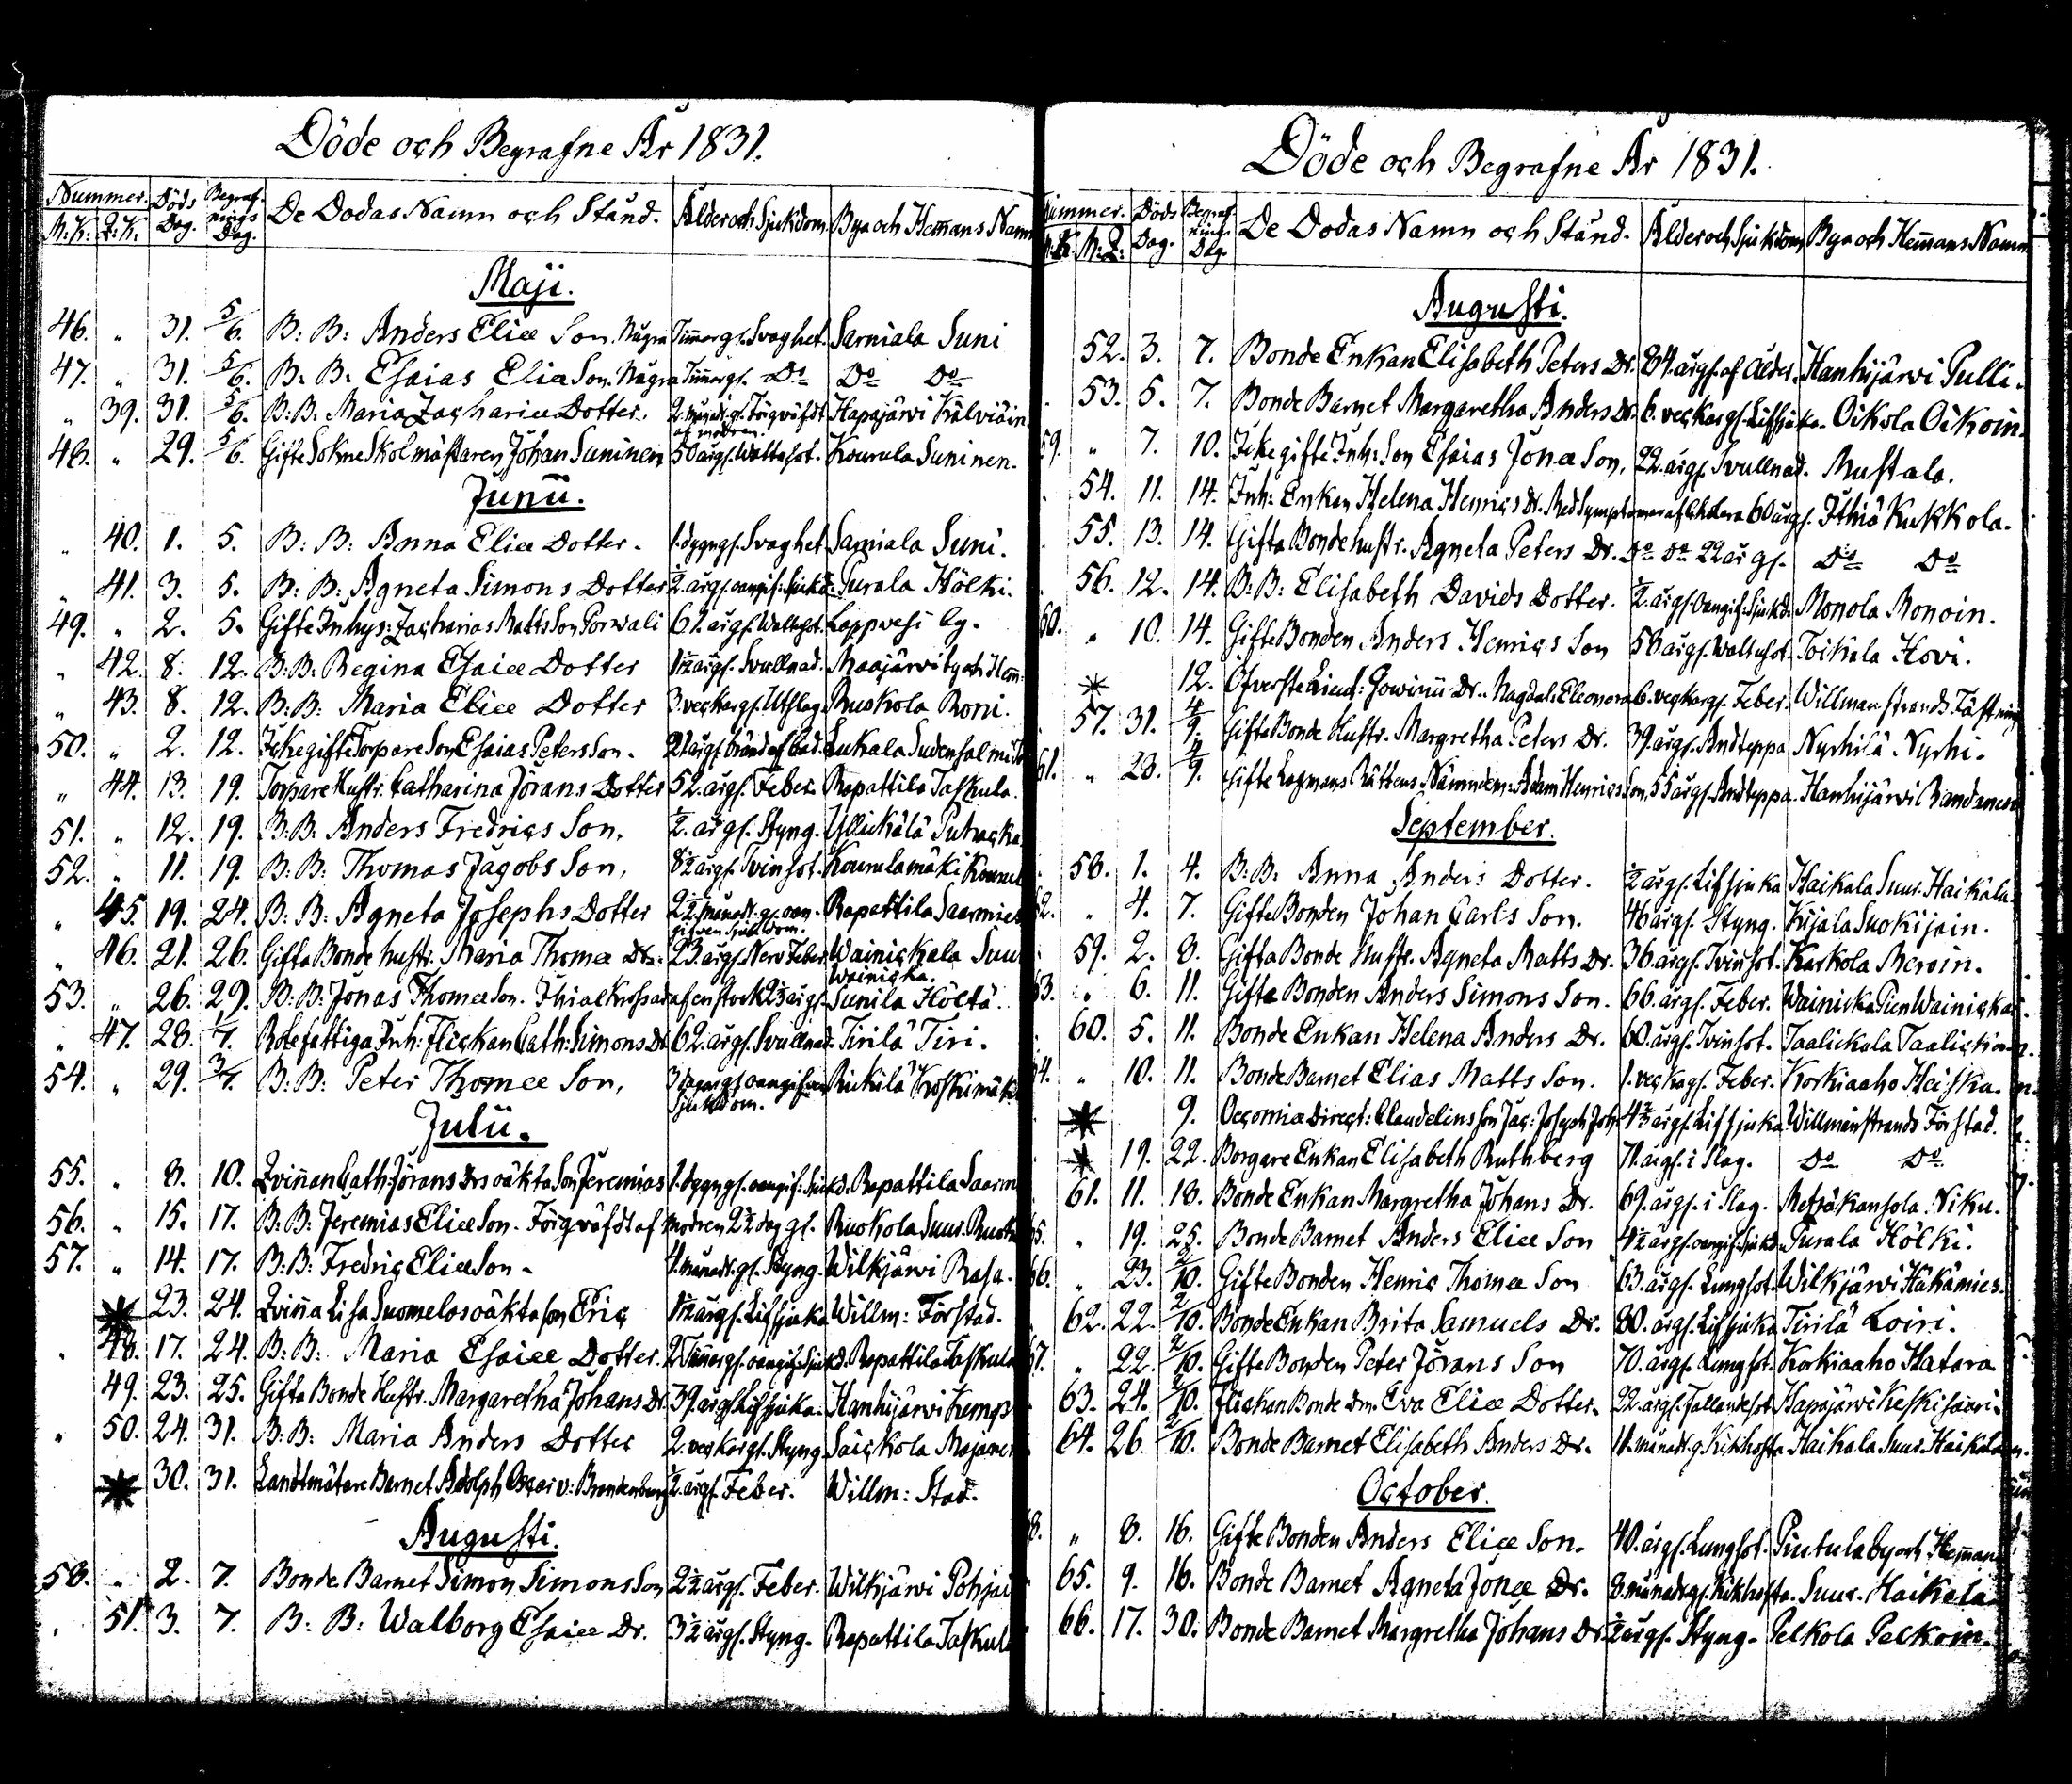 Döde och Begrafne År 1831.
Nummer. Döds Dag. Begrafnings Dag. De Dödas Namn och Stånd. Ålder och Sjukdom. Bya och Hemans Namn
M.K. Q.K.
Maji.
46. " 31. 5/6. B: B: Anders Eliæ Son. Några Timar gl. Svaghet. Sarniala Suni
47. " 31. 5/6. B: B: Esaias Eliæ Son. Några Timar gl. Do Do Do
" 39. 31. 5/6. B: B: Maria Zachariæ Dotter. 2. månad. gl. förqväfdt af modren. Hapajärvi Kälviäin.
48. " 29. 5/6. Gifte Sokne Skolmästaren Johan Suninen 50 årgl. Wattusot. Kourula Suninen.
Junii.
" 40. 1. 5. B: B: Anna Eliæ Dotter. 1. dygn gl. Svaghet Sarniala Suni.
" 41. 3. 5. B: B: Agneta Simons Dotter ½. årgl. oangif: Sjukd: Purala Hölki.
49. " 2. 5. Gifte Inhys: Zacharias Matts Son Porvali 61. årgl. Wattusot. Lappvesi by.
" 42. 8. 12. B: B: Regina Esaiæ Dotter 1½ årgl. Svullnad. Maajärvi by och Hem:
" 43. 8. 12. B: B: Maria Eliæ Dotter 3. veckor gl. Utslag. Ruokola Roni.
50. " 2. 12. Icke gifte Torpare Son Esaias Peters Son. 21 årgl. Lukala
" 44. 13. 19. Torpare Hustr. Catharina Jörans Dotter 52. årgl. Feber. Rapattila Taskula.
51. " 12. 19. B: B: Anders Fredrics Son. ½. årgl. Styng. Yllickälä
52. " 11. 19. B: B: Thomas Jacobs Son. 8½ årgl. Tvinsot. Kourulamäki
" 45. 19. 24. B: B: Agneta Josephs Dotter 2½. månad. gl. oangifven Sjukdom. Rapattila
" 46. 21. 26. Gifta Bonde hustr. Maria Thomæ Dr. 23. årgl. Nerv Feber. Wainickala Suur Wainicka.
53. " 26. 29. B: B: Jonas Thomæ Son. Ihjälkrossad af en stock 2½ årgl. Sunila Höltä.
" 47. 28. 1/7. Rotefattiga Inh: Flickan Cath: Simons Dr 62. årgl. Svullnad. Tirilä Tiri.
54. " 29. 3/7. B: B: Peter Thomæ Son, 3 dagar gl. oangifven Sjukdom. Rickilä Koskimäki
Julii.
55. " 8. 10. Qvinnan Cath: Jörans Drs oäkta Son Jeremias 1. dygn gl. oangif: Sjukd. Rapattila
56. " 15. 17. B: B: Jeremias Eliæ Son. Förqväfdt af modren 2½ dag gl. Ruokola Suur
57. " 14. 17. B: B: Fredric Eliæ Son. 4. månad. gl. Styng. Wilkjärvi Rasa.
23. 24. Qvinna Lisa Suomelas oäkta son Eric 1½ årgl. Lifsjuka Willm: Förstad.
48. 17. 24. B: B: Maria Esaiæ Dotter. 2 Timar gl. oangif: Sjukd. Rapattila Taskula
49. 23. 25. Gifta Bonde Hustr. Margaretha Johans Dr. 39. årgl. Lifsjuka. Hanhijärvi
" 50. 24. 31. B: B: Maria Anders Dotter 2. veckor gl. Styng. Saickola
30. 31. Landtmätare Barnet Adolph Oscar v: Brandenburg ½. årgl. Feber. Willm: Stad.
Augusti.
58. " 2. 7. Bonde Barnet Simon Simons Son 2½ årgl. Feber. Wilkjärvi Pohjai
. 51. 3. 7. B: B: Walborg Esaiæ Dr. 3½ årgl. Styng. Rapattila Taskula
Döde och Begrafne År 1831.
Nummer. Döds Dag. Begrafnings Dag. De Dödas Namn och Stånd. Ålder och Sjukdom Bya och Hemans Namn
Augusti.
52. 3. 7. Bonde Enkan Elisabeth Peters Dr. 84. årgl. af Ålder. Hanhijärvi Pulli.
53. 5. 7. Bonde Barnet Margaretha Anders Dr. 6. veckor gl. Lifsjuka. Oikola Oikoin.
59. " 7. 10. Icke gifte Inh: Son Esaias Jonæ Son. 22. årgl. Svullnad. Mustala.
54. 11. 14. Inh: Enkan Helena Henrics Dr. Med symptomer af Cholera 60 årgl. Ithiä Kukkola.
55. 13. 14. Gifta Bonde hustr. Agneta Peters Dr. Do Do 22 årgl. Do Do
56. 12. 14. B: B: Elisabeth Davids Dotter. ½. årgl. Oangif: Sjukd. Monola Monoin.
60. " 10. 14. Gifte Bonden Anders Henrics Son 58 årgl. Wattusot. Toikala Hovi.
12. Öfverste Lieut: Gowinii Dr. Magdal: Eleonora 6. veckor gl. Feber. Willmanstrands Fästning
57. 31. 4/9. Gifta Bonde Hustr. Margretha Peters Dr. 39. årgl. Andteppa Nyrhilä Nyrhi.
61. " 28. 4/9. Gifte Lagmans Rättens Nämndem: Adam Henrics Son, 55 årgl. Andteppa. Hanhijärvi
September.
58. 1. 4. B: B: Anna Anders Dotter. ½ årgl. Lifsjuka Haikala Suur Haikala
62. " 4. 7. Gifte Bonden Johan Carls Son. 46 årgl. Styng. Kijala Suokijain.
59. 2. 8. Gifta Bonde Hustr. Agneta Matts Dr. 36. årgl. Tvinsot. Karkola Meroin.
63. " 6. 11. Gifte Bonden Anders Simons Son. 66. årgl. Feber. Wainicka Pien Wainicka
60. 5. 11. Bonde Enkan Helena Anders Dr. 60. årgl. Tvinsot. Taalickala
64. " 10. 11. Bonde Barnet Elias Matts Son. 1. vecka gl. Feber. Korkiaaho Heiska.
9. Occomie Direct: Claudelins Son Jac: Joseph Joh: 4½ årgl. Lifsjuka Willmanstrands Förstad.
19. 22. Borgare Enkan Elisabeth Ruthberg 71. årgl. i Slag. Do Do
61. 11. 18. Bonde Enkan Margretha Johans Dr. 69. årgl. i Slag. Metsäkansola Niku.
65. " 19. 25. Bonde Barnet Anders Eliæ Son 4½ årgl. oangif: Sjukd. Purala Hölki.
66. " 23. 2/10. Gifte Bonden Henric Thomæ Son 63. årgl. Lungsot. Wilkjärvi Häkämies.
62. 22. 2/10. Bonde Enkan Brita Samuels Dr. 80. årgl. Lifsjuka Tirilä Loiri.
67. " 22. 2/10. Gifte Bonden Peter Jörans Son 70. årgl. Lungsot. Korkiaaho Hatara
63. 24. 2/10. Flickan Bonde Dm. Eva Eliæ Dotter. 22. årgl. Fallandesot Hapajärvi Keskisaari.
64. 26 2/10. Bonde Barnet Elisabeth Anders Dr. 11. månad. gl. Kikhosta. Haikala Suur Haikala
October.
68. " 8. 16. Gifte Bonden Anders Eliæ Son. 40. årgl. Lungsot. Piutula by och Heman
65. 9. 16. Bonde Barnet Agneta Jonæ Dr. 8. månad. gl. Kikhosta. Suur Haikala
66. 17. 30. Bonde Barnet Margretha Johans Dr. ½ årgl. Styng. Pelkola Pelkoin.